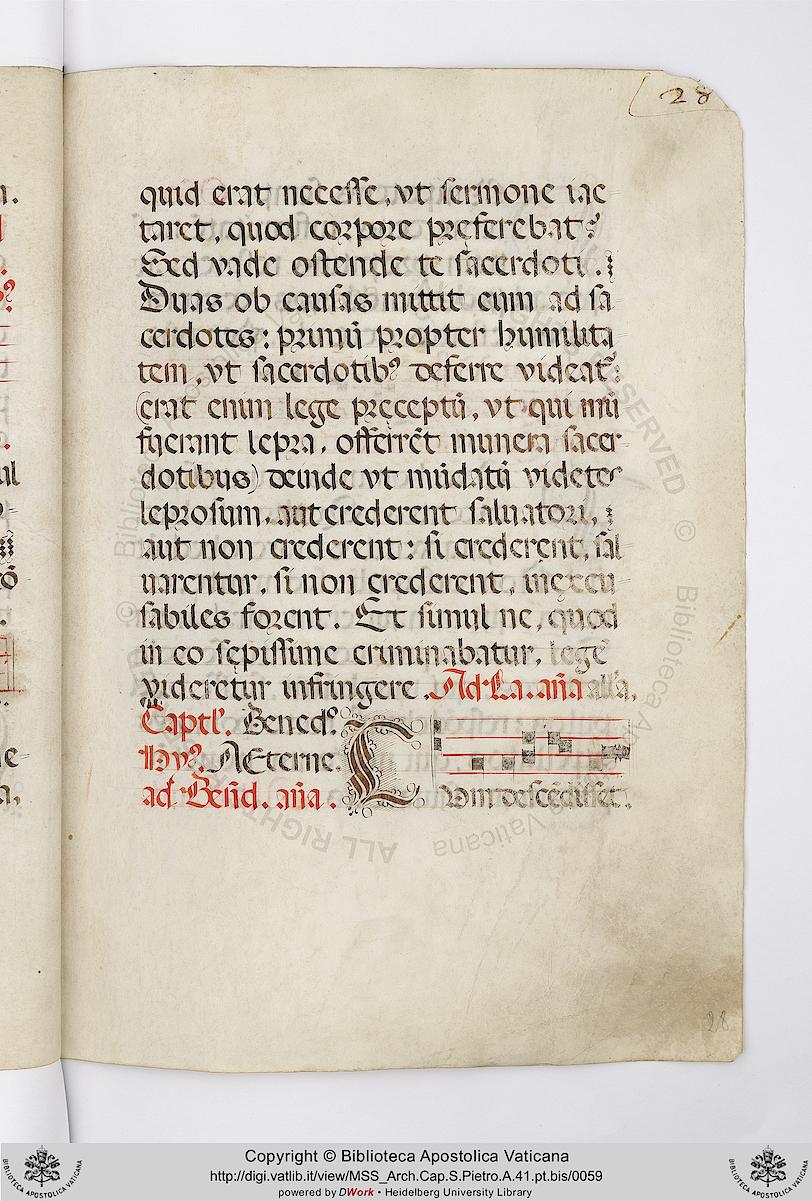 28
quid erat necesse, vt sermone iac
taret, quod corpore preferebat?
Sed vade ostende te sacerdoti.
Duas ob causas mittit eum ad sa
cerdotes: primū propter humilita
tem, vt sacerdotibꝰ deferre videat᷑:
(erat enim lege pręceptū, vt qui mū
fuerant lepra, offerrēt munera sacer
dotibus) deinde vt mūdatū videtes
leprosum, aut crederent saluatori,
aut non crederent: si crederent, sal
uarentur, si non crederent, inexcu
sabiles forent. Et simul ne, quod
in eo sępissime criminabatur, legē
videretur infringere. Ad La. aña all'a,
Captl'. Bened⁰.
Hyꝰ. AEterne.
ad Beñd. aña. Cum descēdisset.
28
Copyright © Biblioteca Apostolica Vaticana
http://digi.vatlib.it/view/MSS_Arch.Cap.S.Pietro.A.41.pt.bis/0059
powered by DWork • Heidelberg University Library